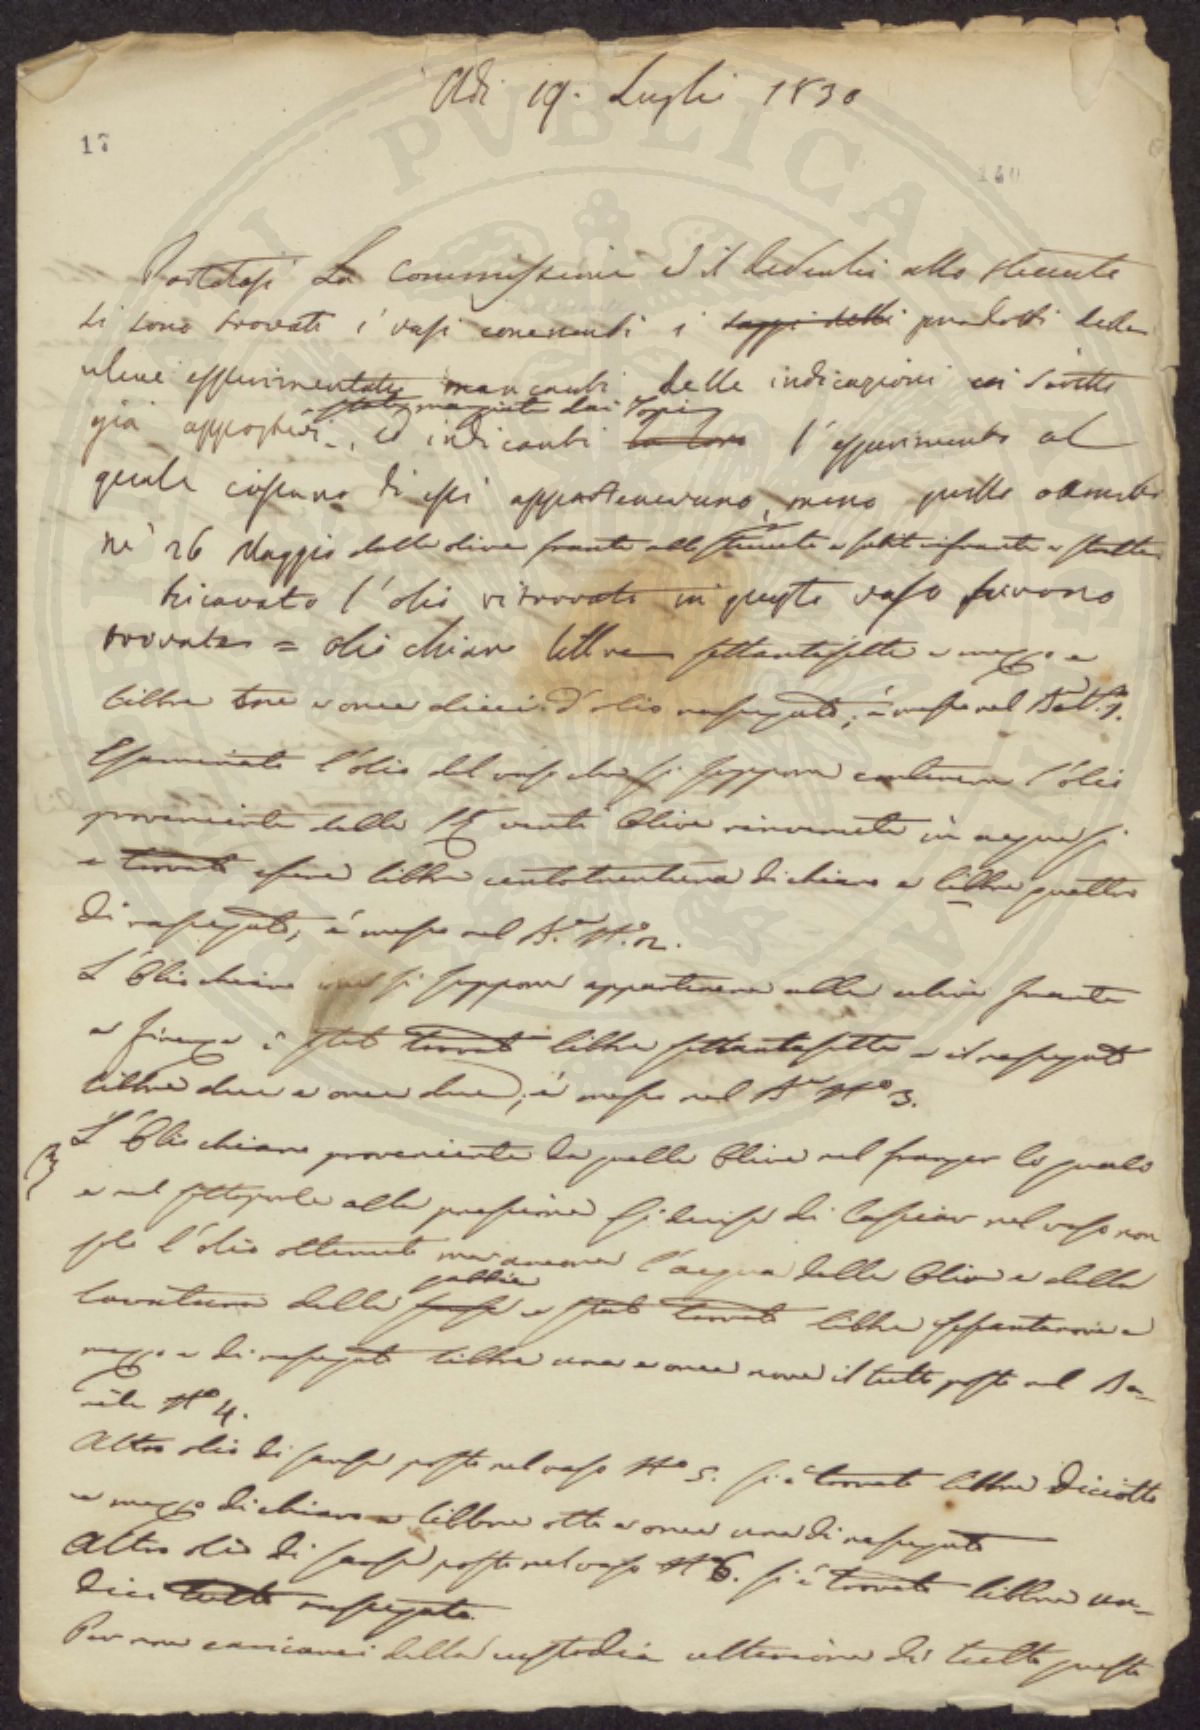 Adì 19. Luglio 1830
17
140
Portatasi La Commissione ed il allo
si sono trovati i vasi contenenti i saggi delli prodotti delle
ulive esperimentate mancanti delle indicazioni ivi scritte
state mangiate dai Topi
già appostevi, ed indicanti la loro l'esperimento al
quale ciascuno di essi appartenevano, meno quello ottenuto
ne' 26 Maggio dalle olive frante allo e subito rifrante e strette
Ricavato l'olio ritrovato in questo vaso furono
trovate = olio chiaro libbre settantasette e mezzo e
libbre tre e once dieci d'olio rassegato; è messo nel Bar. N.º 1.
Esaminato l'olio del vaso che si suppone contenere l'olio
proveniente dalle venti Olive rinvenute in acqua si
è trovato essere libbre centotrentuna di chiaro e libbre quattro
di rassegato, è messo nel B.e N.º 2.
L'Olio chiaro che si suppone appartenere alle ulive frante
a Firenze è stato trovato libbre settantasette e il rassegato
libbre due e once due; è messo nel B.e Nº 3.
L'Olio chiaro proveniente da quelle Olive nel franger le quali
e nel sottoporle alla pressione si decise di lasciar nel vaso non
solo l'olio ottenuto ma ancora l'acqua delle Olive e della
gabbie
lavatura delle è stato trovato libbre sessantanove e
mezzo e di rassegato libbre una e once nove il tutto posto nel Ba-
rile Nº 4.
Altro olio di sansa posto nel vaso Nº 5. si è trovato libbre diciotto
e mezzo di chiaro e libbre otto e once una di rassegato
Altro olio di sansa posto nel vaso Nº 6. si è trovato libbre un-
dici tutto rassegato.
Per non caricarsi della custodia ulteriore di tutto questo